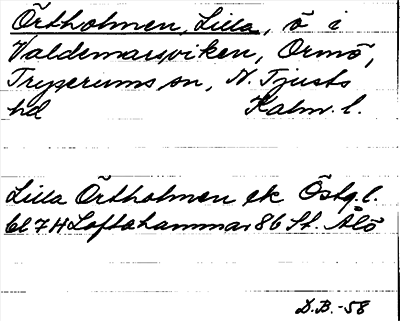 Örtholmen, Lilla, ö i
Valdemarsviken, Ormö,
Tryserums sn, N. Tjusts
hd Kalm. l.
Lilla Örtholmen ek Östg. l.
bl 7H Loftahammar 86 St. Ålö
D.B. -58